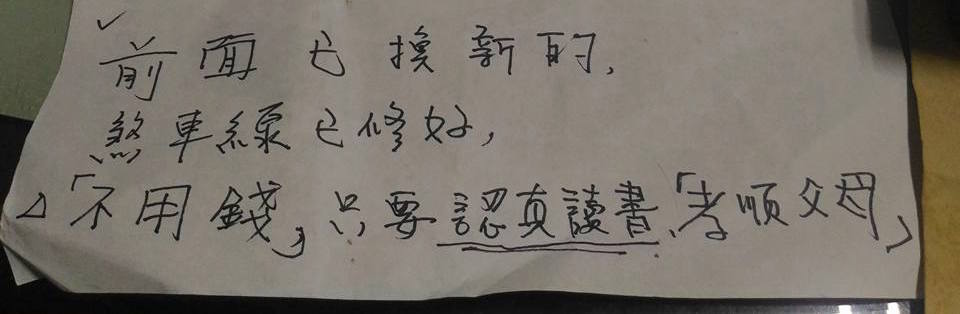 ✓前面已換新的,
煞車線已修好,
△「不用錢」只要認真讀書、「孝順父母」